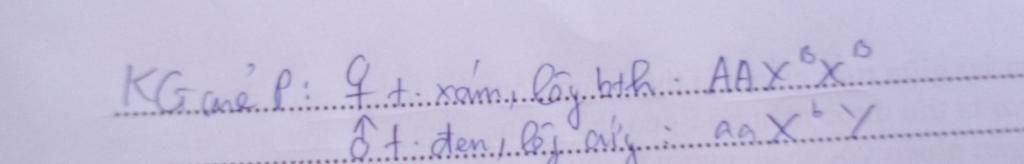 KG của P: ♀ t. xám, lông bth: AAXᴮXᴮ
♂ t. đen, lông : aaXᵇY